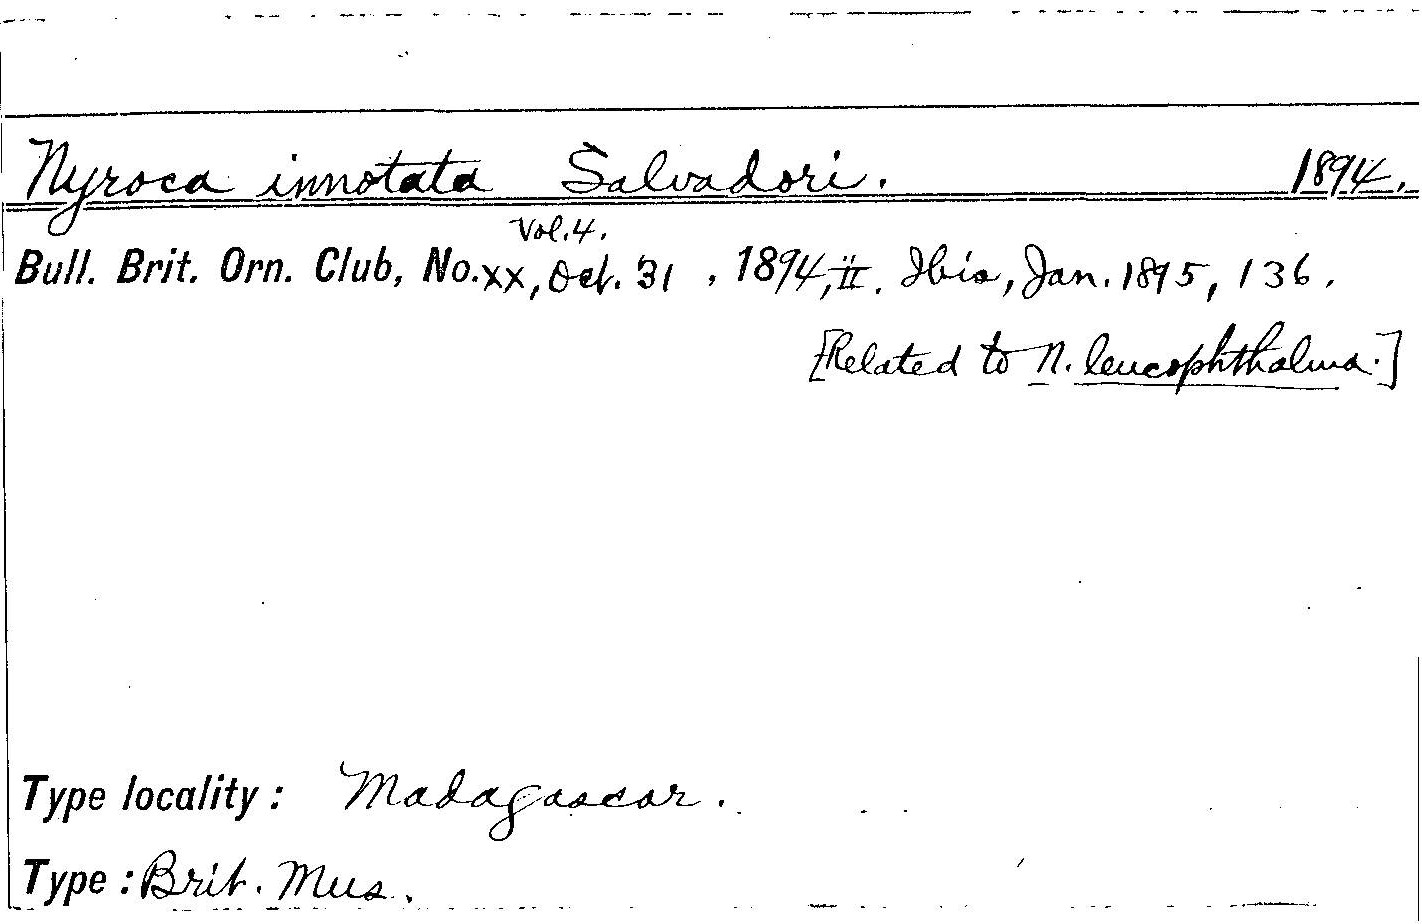 Nyroca innotata Salvadori. 1894.
Vol. 4.
Bull. Brit. Orn. Club, No. XX, Oct. 31, 1894, ii. Ibis, Jan. 1895, 136.
[Related to N. leucophthalma.]
Type locality: Madagascar.
Type: Brit. Mus.